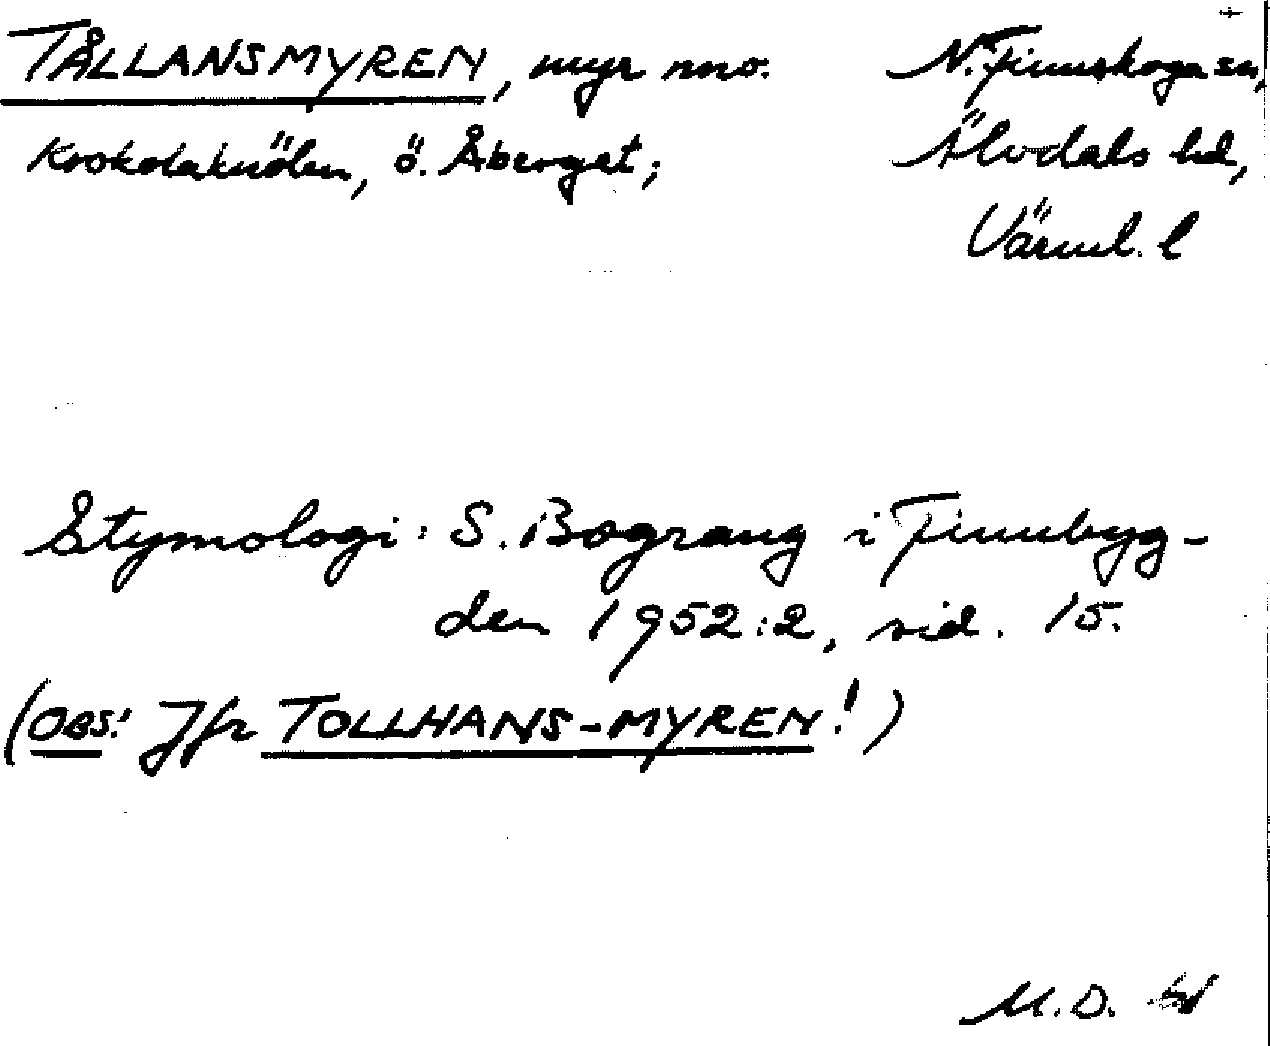 TÅLLANSMYREN, myr nno. N. Finnskoga sn,
Krokolaknölen, ö. Åberget; Älvdals hd,
Värml. l
Etymologi: S. Bograng i Finnbyg-
den 1952:2, sid. 15.
(OBS! Jfr TOLLHANS-MYREN!)
M.D.